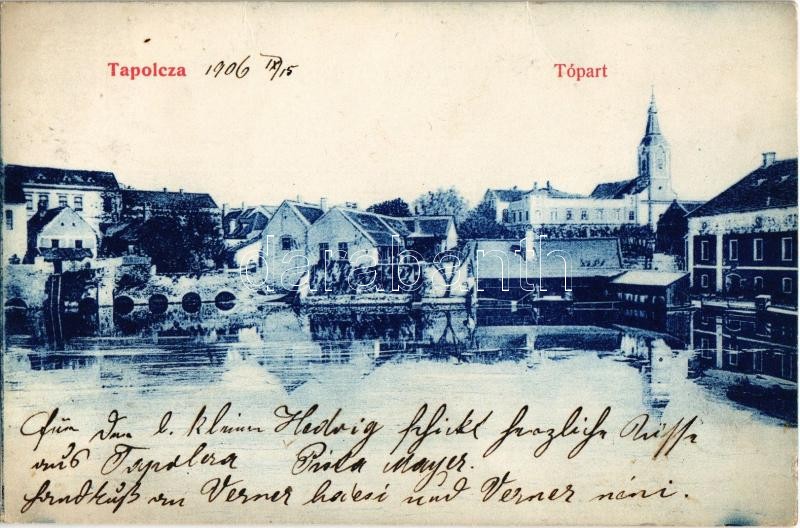 Tapolcza 1906 IX/15 Tópart
darabanth
Für den l. kleinen Hedvig schickt herzliche Küsse
aus Tapolcza Pista Mayer.
Handkuß an Verner bácsi und Verner néni.